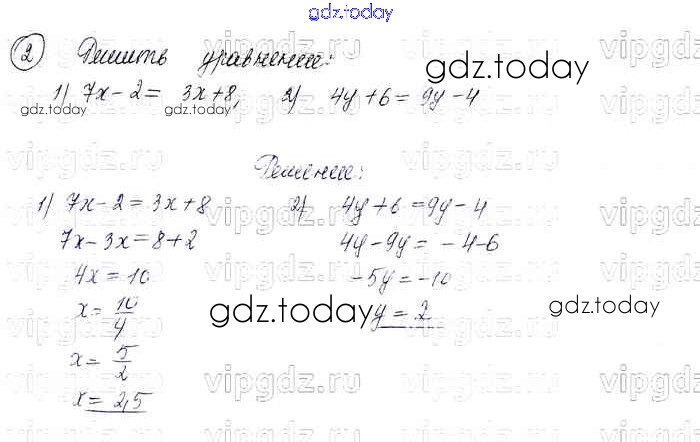 gdz.today
2 Решить уравнение:
1) 7x - 2 = 3x + 8, 2) 4y + 6 = 9y - 4
gdz.today gdz.today gdz.today
Решение:
1) 7x - 2 = 3x + 8 2) 4y + 6 = 9y - 4
7x - 3x = 8 + 2 4y - 9y = -4 - 6
4x = 10 -5y = -10
x = 10/4 y = 2
gdz.today gdz.today
x = 5/2
x = 2,5
vipgdz.ru